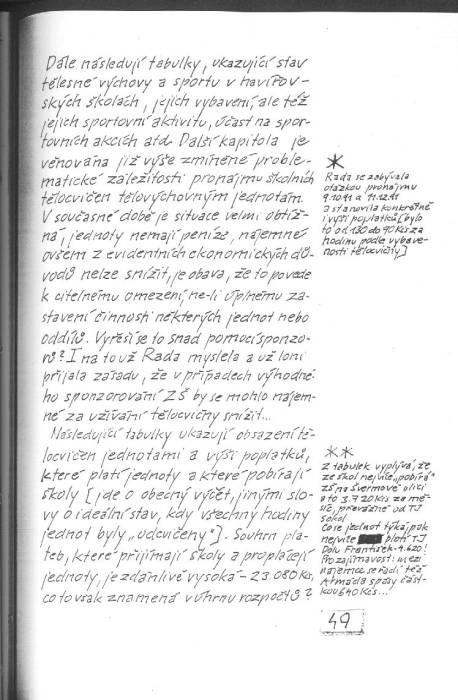 Dále následují tabulky, ukazující stav
tělesné výchovy a sportu v havířov-
ských školách, jejich vybavení, ale též
jejich sportovní aktivitu, účast na spor-
tovních akcích atd. Další kapitola je
věnována již výše zmíněné proble-
matické záležitosti pronájmu školních
tělocvičen tělovýchovným jednotám.
V současné době je situace velmi obtíž-
ná, jednoty nemají peníze, nájemné
ovšem z evidentních ekonomických dů-
vodů nelze snížit, je obava, že to povede
k citelnému omezení, ne-li úplnému za-
stavení činnosti některých jednot nebo
oddílů. Vyřeší se to snad pomocí sponzo-
rů? I na to už Rada myslela a už loni
přijala zásadu, že v případech výhodné-
ho sponzorování ZŠ by se mohlo nájem-
né za užívání tělocvičny snížit...
Následující tabulky ukazují obsazení tě-
locvičen jednotami a výši poplatků,
které platí jednoty a které pobírají
školy [jde o obecný výčet, jinými slo-
vy o ideální stav, kdy všechny hodiny
jednot byly „odcvičeny"]. Souhrn pla-
teb, které přijímají školy a proplácejí
jednoty, je zdánlivě vysoká - 23.080 Kčs,
co to však znamená v úhrnu rozpočtů?
*
Rada se zabývala
otázkou pronájmu
9.10.91 a 11.12.91
a stanovila konkrétně
i výši poplatků [bylo
to od 130 do 90 Kčs za
hodinu podle vybave-
nosti tělocvičny]
**
Z tabulek vyplývá, že
ze škol nejvíce „pobírá"
ZŠ na Švermově ulici
a to 3.720 Kčs za mě-
síc, převážně od TJ
Sokol.
Co se jednot týká, pak
nejvíce platí TJ
Dolu František - 4.620!
Pro zajímavost: mezi
nájemce se řadí též
Armáda spásy část-
kou 640 Kčs...!
49